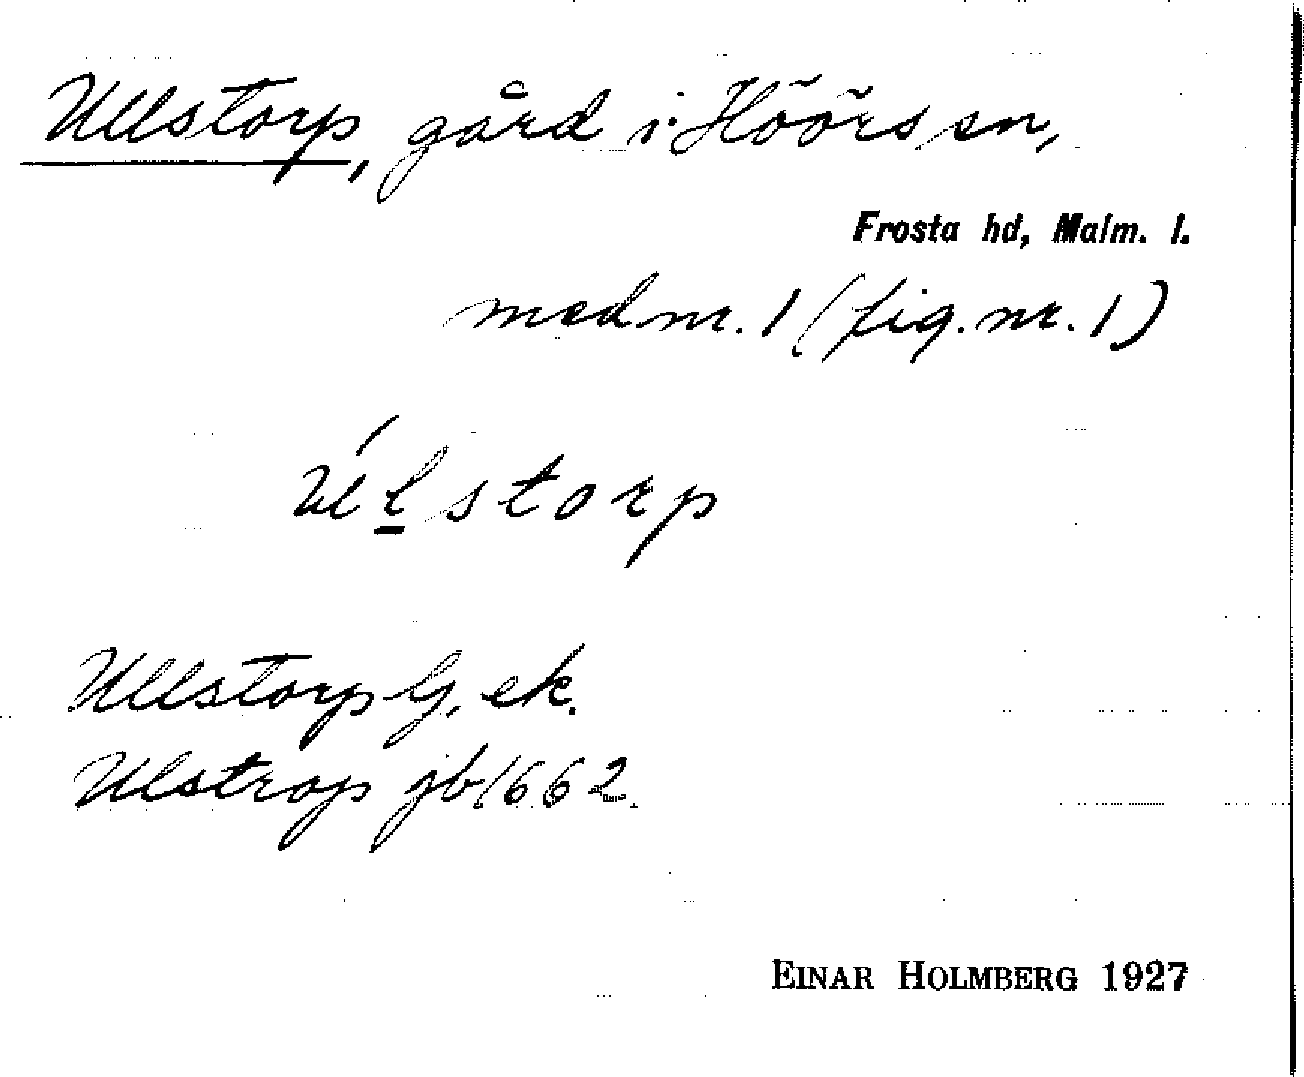 Ullstorp, gård i Höörs sn,
Frosta hd, Malm. l.
med nr. 1 (fig. nr. 1)
úl̲storp
Ullstorp G, ek.
Ulstrop jb 1662.
EINAR HOLMBERG 1927